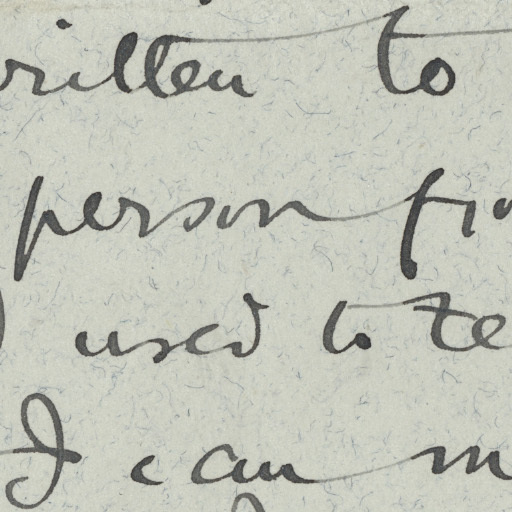 written to
person fro
used to te
I can m